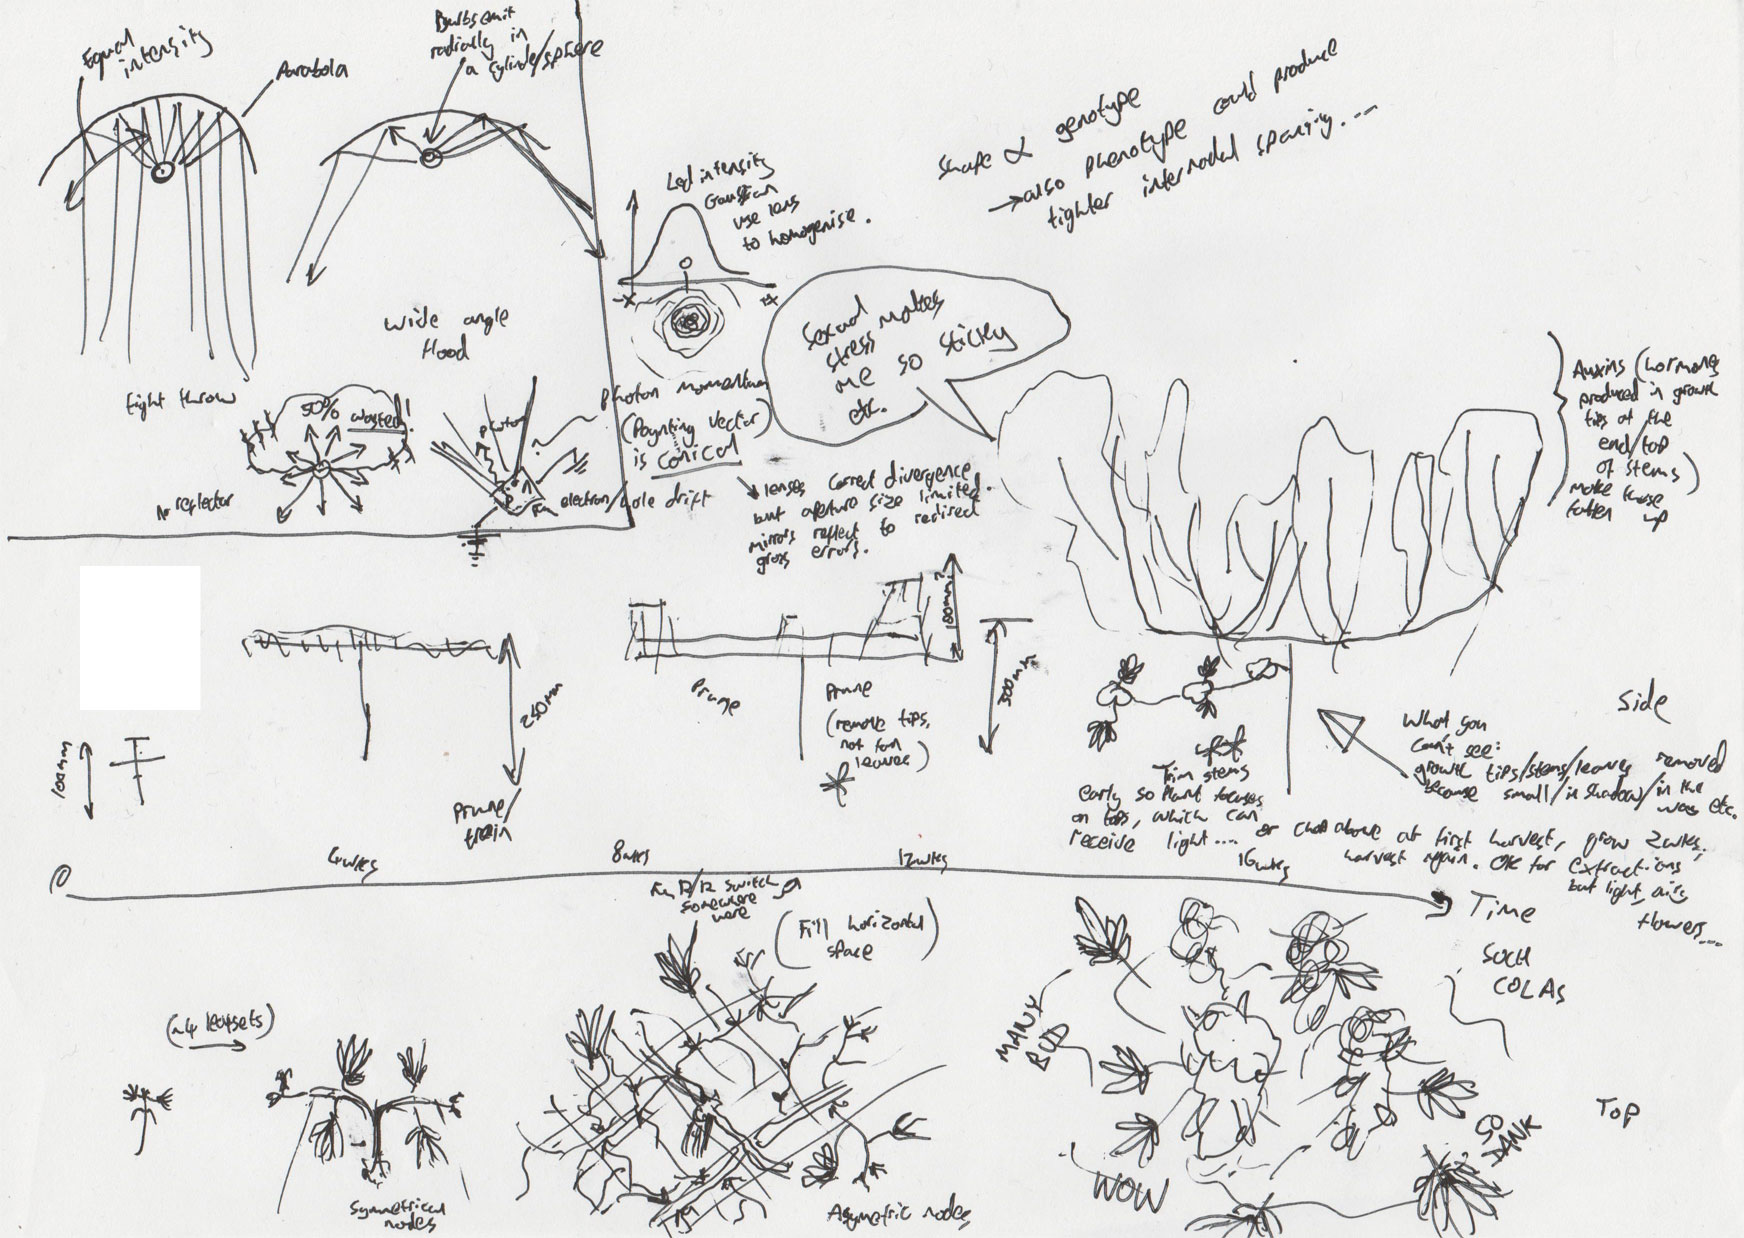 Equal
intensity
Parabola
Bulbs emit
radially in
a cylinder/sphere
tight throw
wide angle
flood
50%
wasted!
No reflector
photon
electron/hole drift
Led intensity
Gaussian
use lens
to homogenise.
-x
+x
photon momentum
(Poynting vector)
is conical
lenses correct divergence
but aperture size limited.
mirrors reflect to redirect
gross errors.
Shape ∝ genotype
→ also phenotype could produce
tighter internodal spacing....
Sexual
stress makes
me so sticky
etc.
Auxins (hormones
produced in growth
tips at the
end/top
of stems)
make these
fatten up
100mm
250mm
Prune/
train
Prune
Prune
(remove tips,
not fan
leaves)
100mm?
500mm
Side
Trim stems
early so plant focuses
on tops, which can
receive light.... or chop above at first harvest, grow 2wks,
harvest again. OK for extractions
but light airy
flowers....
What you
can't see:
growth tips/stems/leaves removed
because small/in shadow/in the
way etc.
0
4wks
8wks
12wks
16wks
Time
12/12 switch
somewhere
here
(Fill horizontal
space)
(~4 leafsets)
Symmetrical
nodes
Asymetric nodes
MANY
BUD
SUCH
COLAS
SO
DANK
WOW
TOP